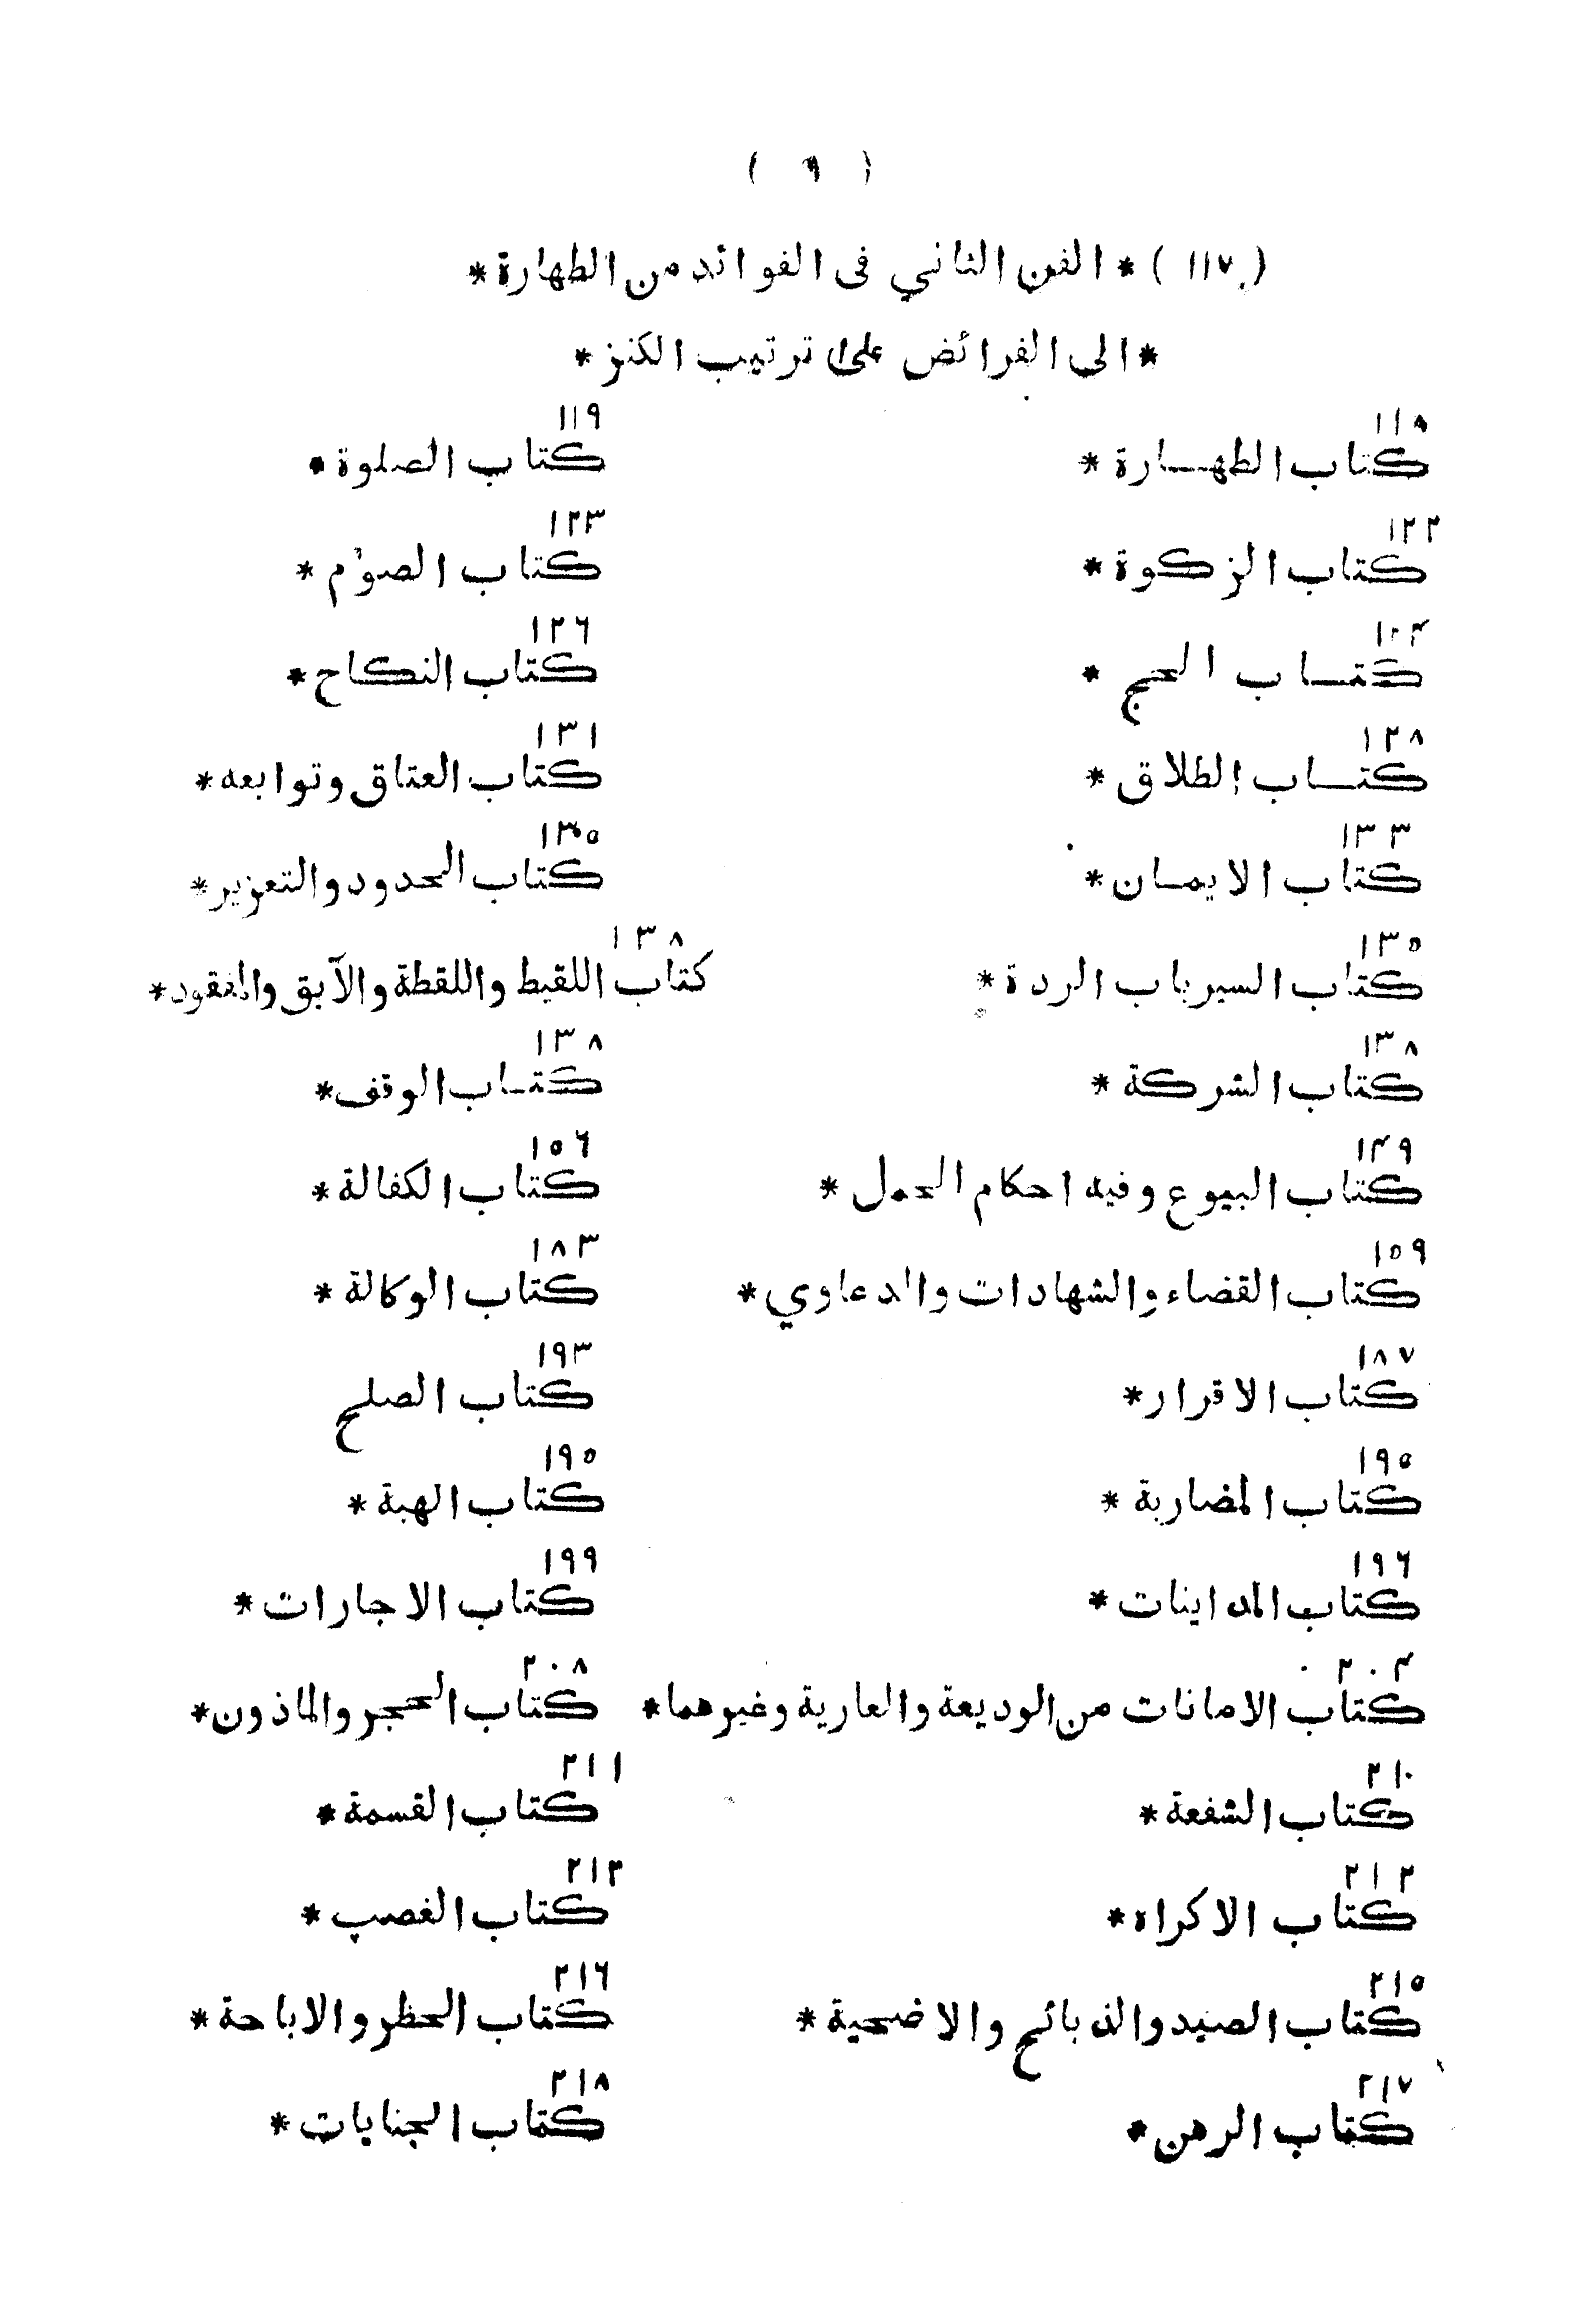 ( ٩ )
( ١١٧ ) * الفن الثاني فى الفوائد من الطهارة *
* الى الفرائض على ترتيب الكنز *
١١٨ ١١٩
كتاب الطهــارة * كتاب الصلوة *
١٢٢ ١٢٣
كتاب الزكوة * كتاب الصوم *
١٢٤ ١٢٦
كتــاب الحج * كتاب النكاح *
١٢٨ ١٣١
كتــاب الطلاق * كتاب العتاق وتوابعه *
١٣٣ ١٣٥
كتاب الايمــان * كتاب الحدود والتعزير *
١٣٥ ١٣٨
كتاب السير باب الردة * كتاب اللقيط واللقطة والآبق والمفقود *
١٣٨ ١٣٨
كتاب الشركة * كتــاب الوقف *
١٤٩ ١٥٦
كتاب البيوع وفيه احكام الحمل * كتاب الكفالة *
١٥٩ ١٨٣
كتاب القضاء والشهادات والدعاوي * كتاب الوكالة *
١٨٧ ١٩٣
كتاب الاقرار * كتاب الصلح
١٩٥ ١٩٥
كتاب المضاربة * كتاب الهبة *
١٩٦ ١٩٩
كتاب المداينات * كتاب الاجارات *
٢٠٤ ٢٠٨
كتاب الامانات من الوديعة والعارية وغيرهما * كتاب الحجر والماذون *
٢١٠ ٢١١
كتاب الشفعة * كتاب القسمة *
٢١٢ ٢١٣
كتاب الاكراه * كتاب الغصب *
٢١٥ ٢١٦
كتاب الصيد والذبائح والاضحية * كتاب الحظر والاباحة *
٢١٧ ٢١٨
كتاب الرهن * كتاب الجنايات *